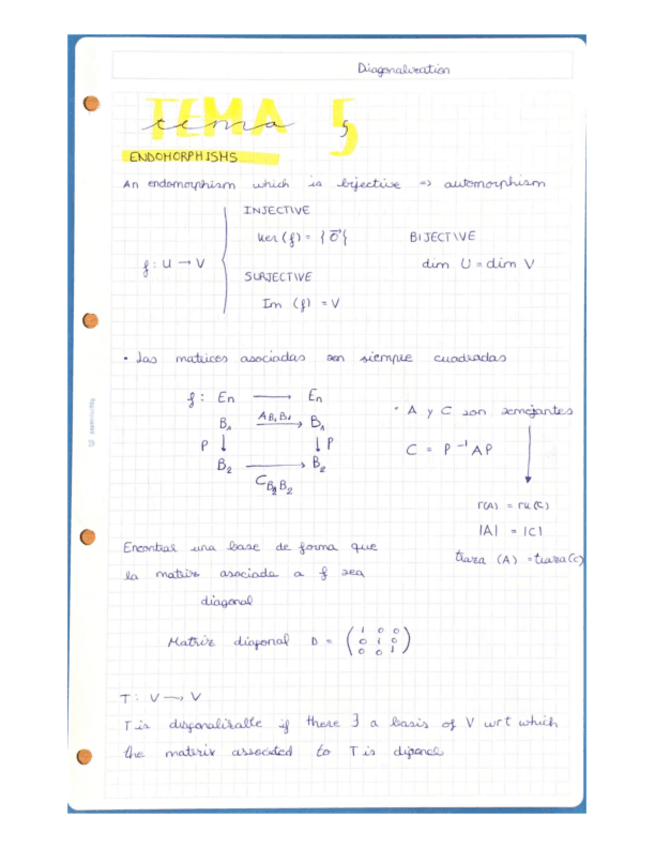 Diagonalization
TEMA 5
tema 5
ENDOMORPHISMS
An endomorphism which is bijective => automorphism
INJECTIVE
ker (f) = { 0⃗ }
BIJECTIVE
f : U → V
dim U = dim V
SURJECTIVE
Im (f) = V
• Las matrices asociadas son siempre cuadradas
f : En → En
B₁ A B₁B₁ → B₁
P ↓ ↓ P
B₂ → B₂
C B₂B₂
• A y C son semejantes
C = P⁻¹AP
r(A) = r(C)
|A| = |C|
traza (A) = traza(C)
Encontrar una base de forma que
la matriz asociada a f sea
diagonal
Matriz diagonal D = ( 1 0 0
0 1 0
0 0 1 )
T : V → V
T is diagonalizable if there ∃ a basis of V wrt which
the matrix associated to T is